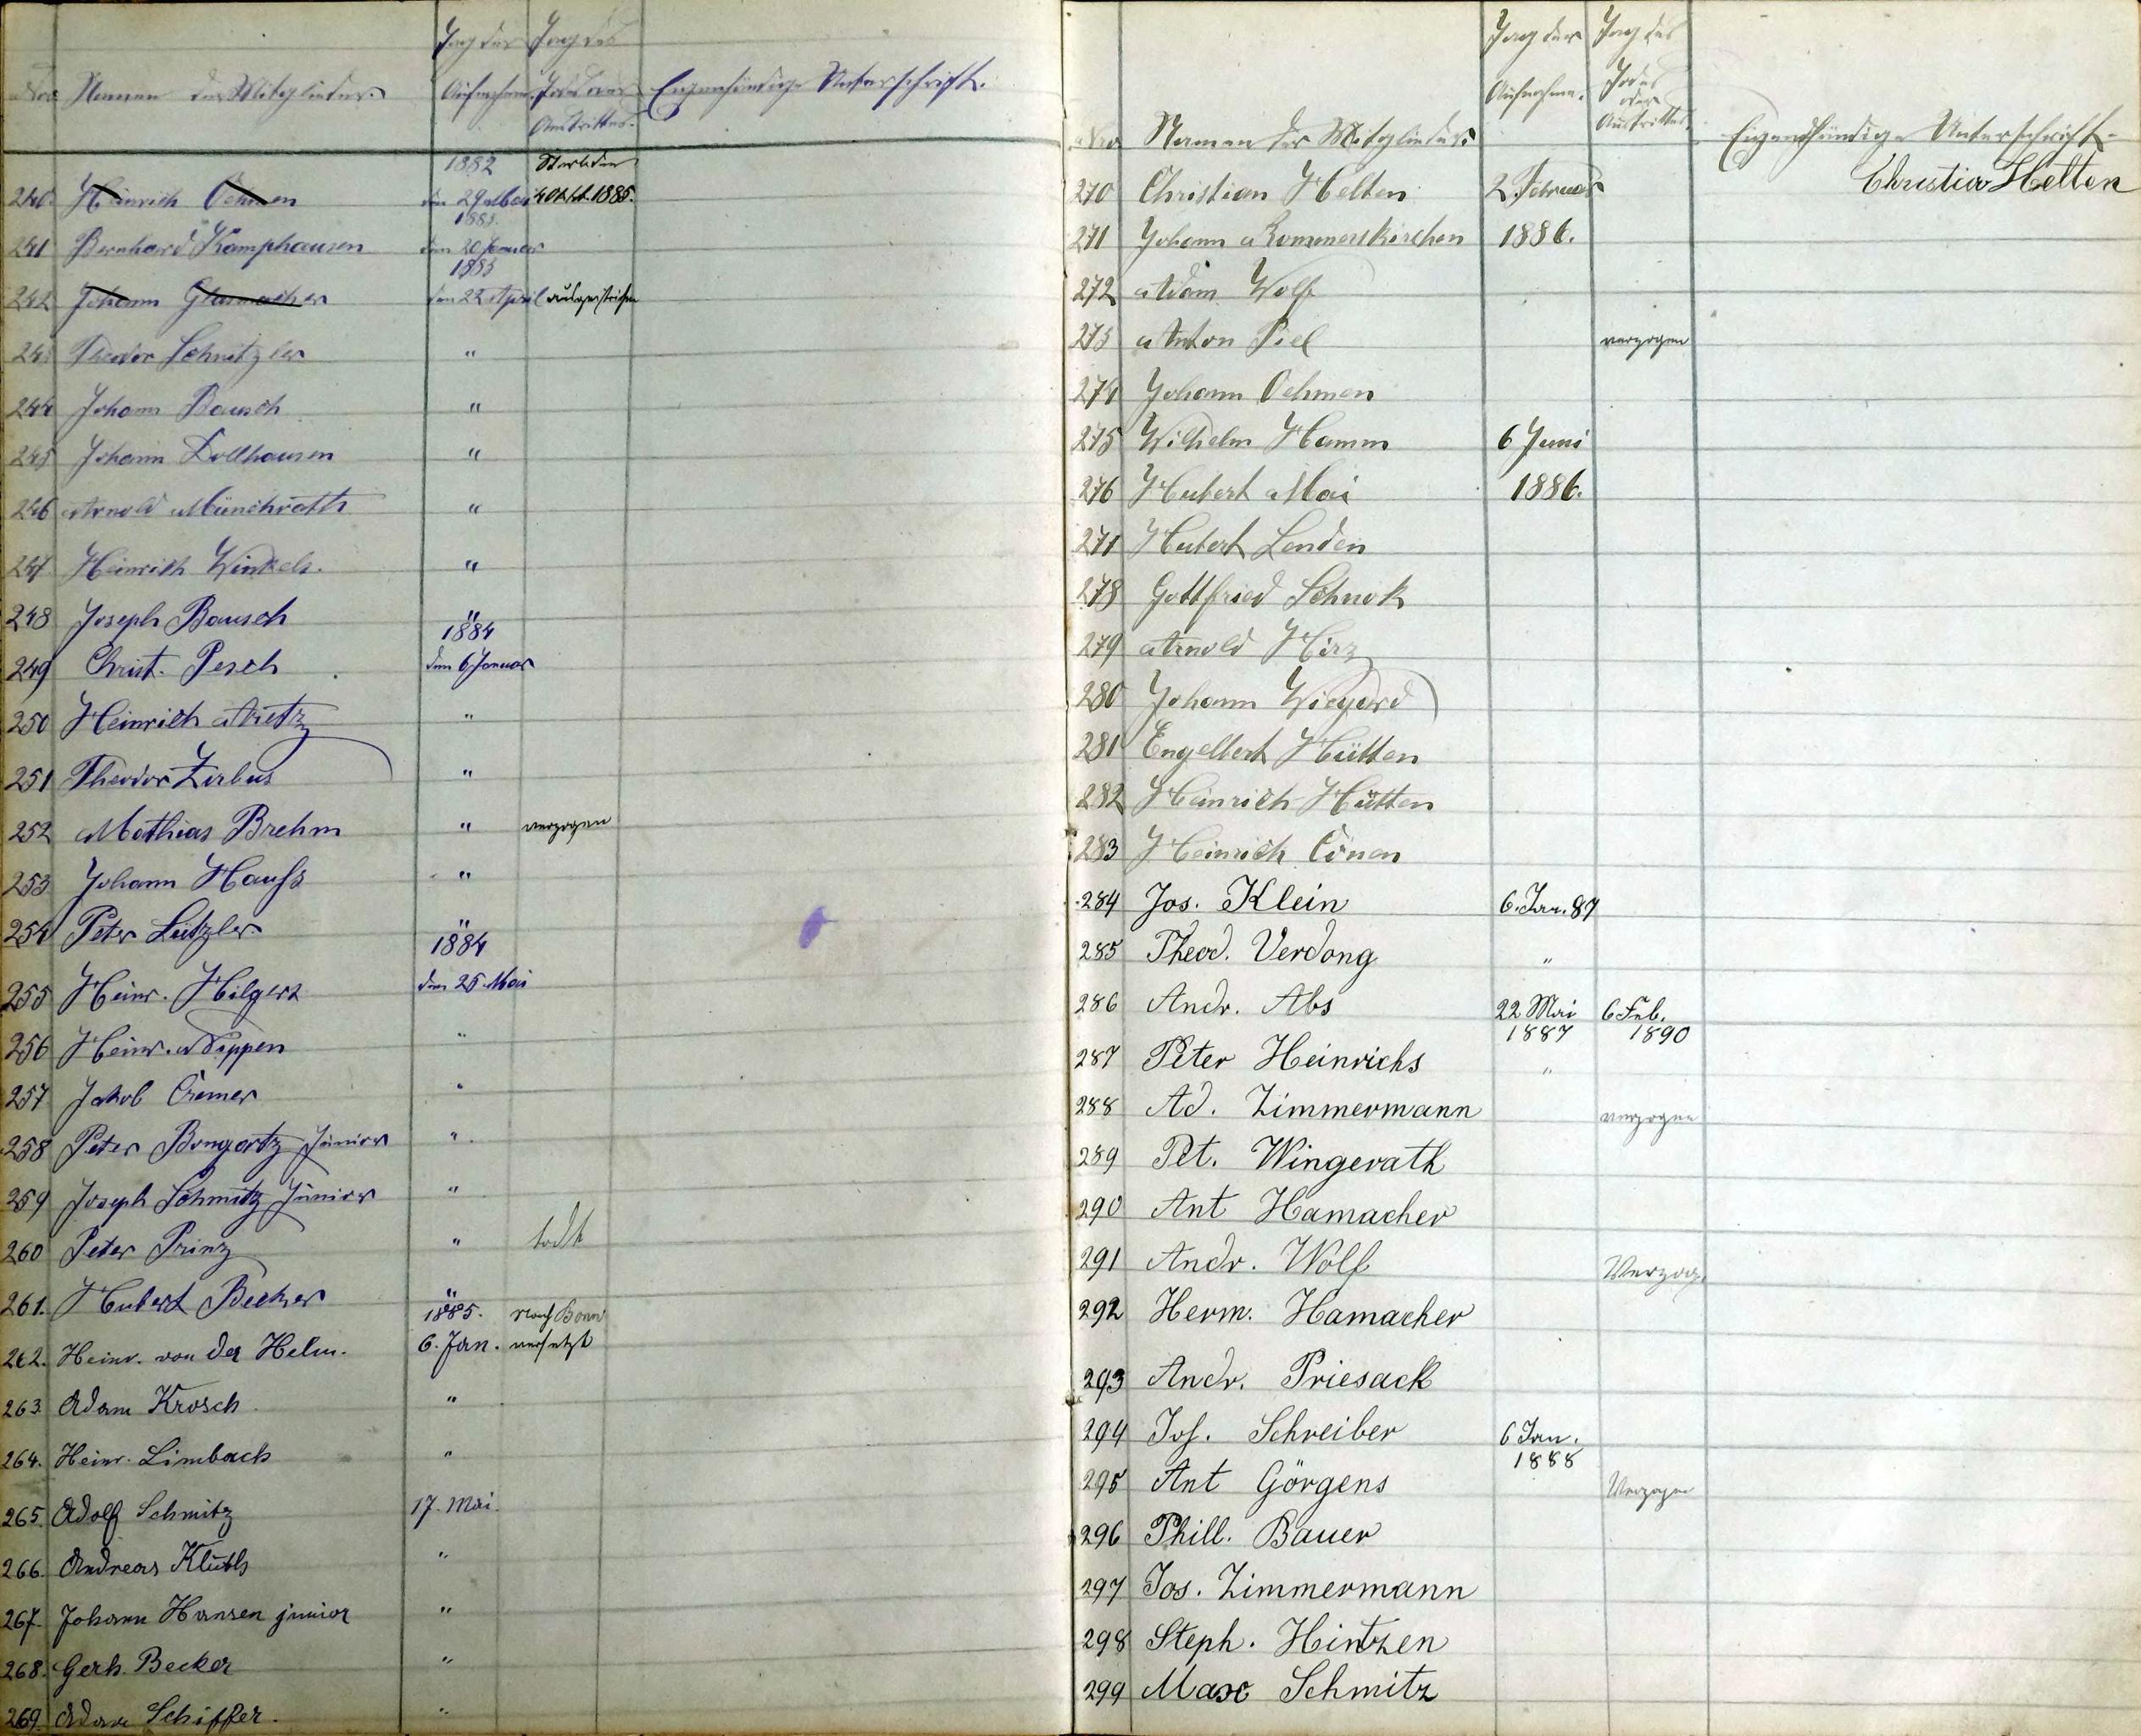 Nro Namen der Mitglieder. Tag der Aufnahme. Tag des Todes oder Austrittes. Eigenhändige Unterschrift.
240. Heinrich Oehmen 1882 den 29 Mai Starb den 4 Oktb. 1885.
241 Bernhard Kamphausen 1883. den 20 Januar
242 Johann Glasmacher 1883 den 22 April ausgestrichen
243 Theodor Schnitzler "
244 Johann Bausch "
245 Johann Dollhausen "
246 Arnold Münchrath "
247 Heinrich Winkels. "
248 Joseph Bausch "
249 Christ. Pesch 1884 den 6 Januar
250 Heinrich "
251 Theodor Zirbus "
252 Mathias Brehm " verzogen
253 Johann Hauſs "
254 Peter Lützler "
255 Heinr. Hilgers 1884 den 25. Mai
256 Heinr. Nippen "
257 Jakob Cremer "
258 Peter Bongartz Junior "
259 Joseph Schmitz Junior "
260 Peter Prinz " todt
261. Hubert Becker "
262. Heinr. von der Helm. 1885. 6. Jan. nach Bonn versetzt
263. Adam Krosch "
264. Heinr. Limbach "
265. Adolf Schmitz 17. Mai.
266. Andreas Kluth "
267. Johann Hansen junior "
268. Gerh. Becker "
269. Adam Schiffer. "
Nro Namen der Mitglieder. Tag der Aufnahme. Tag des Todes oder Austrittes. Eigenhändige Unterschrift.
270 Christian Helten 2. Februar Christian Helten
271 Johann Rommerskirchen 1886.
272 Adam Wolf
273 Anton Piel verzogen
274 Johann Oehmen
275 Wilhelm Hamm 6 Juni
276 Hubert Mai 1886.
277 Hubert Lenden
278 Gottfried Schnok
279 Arnold Hirz
280 Johann Wiegard
281 Engelbert Hütten
282 Heinrich Hütten
283 Heinrich Cönen
284 Jos. Klein 6. Jan. 87
285 Theod. Verdong "
286 Andr. Abs 22 Mai 1887 6 Feb. 1890
287 Peter Heinrichs "
288 Ad. Zimmermann verzogen
289 Pet. Wingerath
290 Ant Hamacher
291 Andr. Wolf Verzog.
292 Herm. Hamacher
293 Andr. Priesack
294 Joſ. Schreiber 6 Jan. 1888
295 Ant Görgens Verzogen
296 Phill. Bauer
297 Jos. Zimmermann
298 Steph. Hintzen
299 Max Schmitz